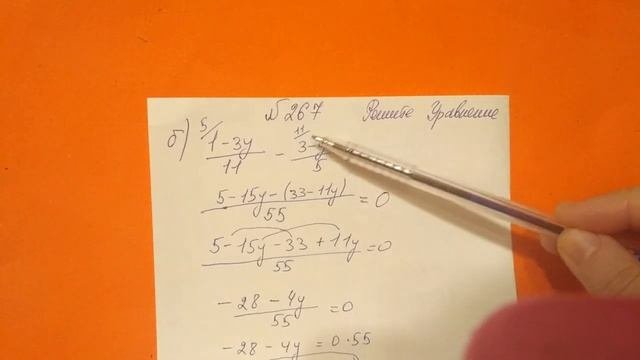 №267 Решите Уравнение
б) 5/ 1-3y/11 - 11/ 3-y/5
5-15y-(33-11y)/55 = 0
5-15y-33+11y/55 = 0
-28-4y/55 = 0
-28-4y = 0·55